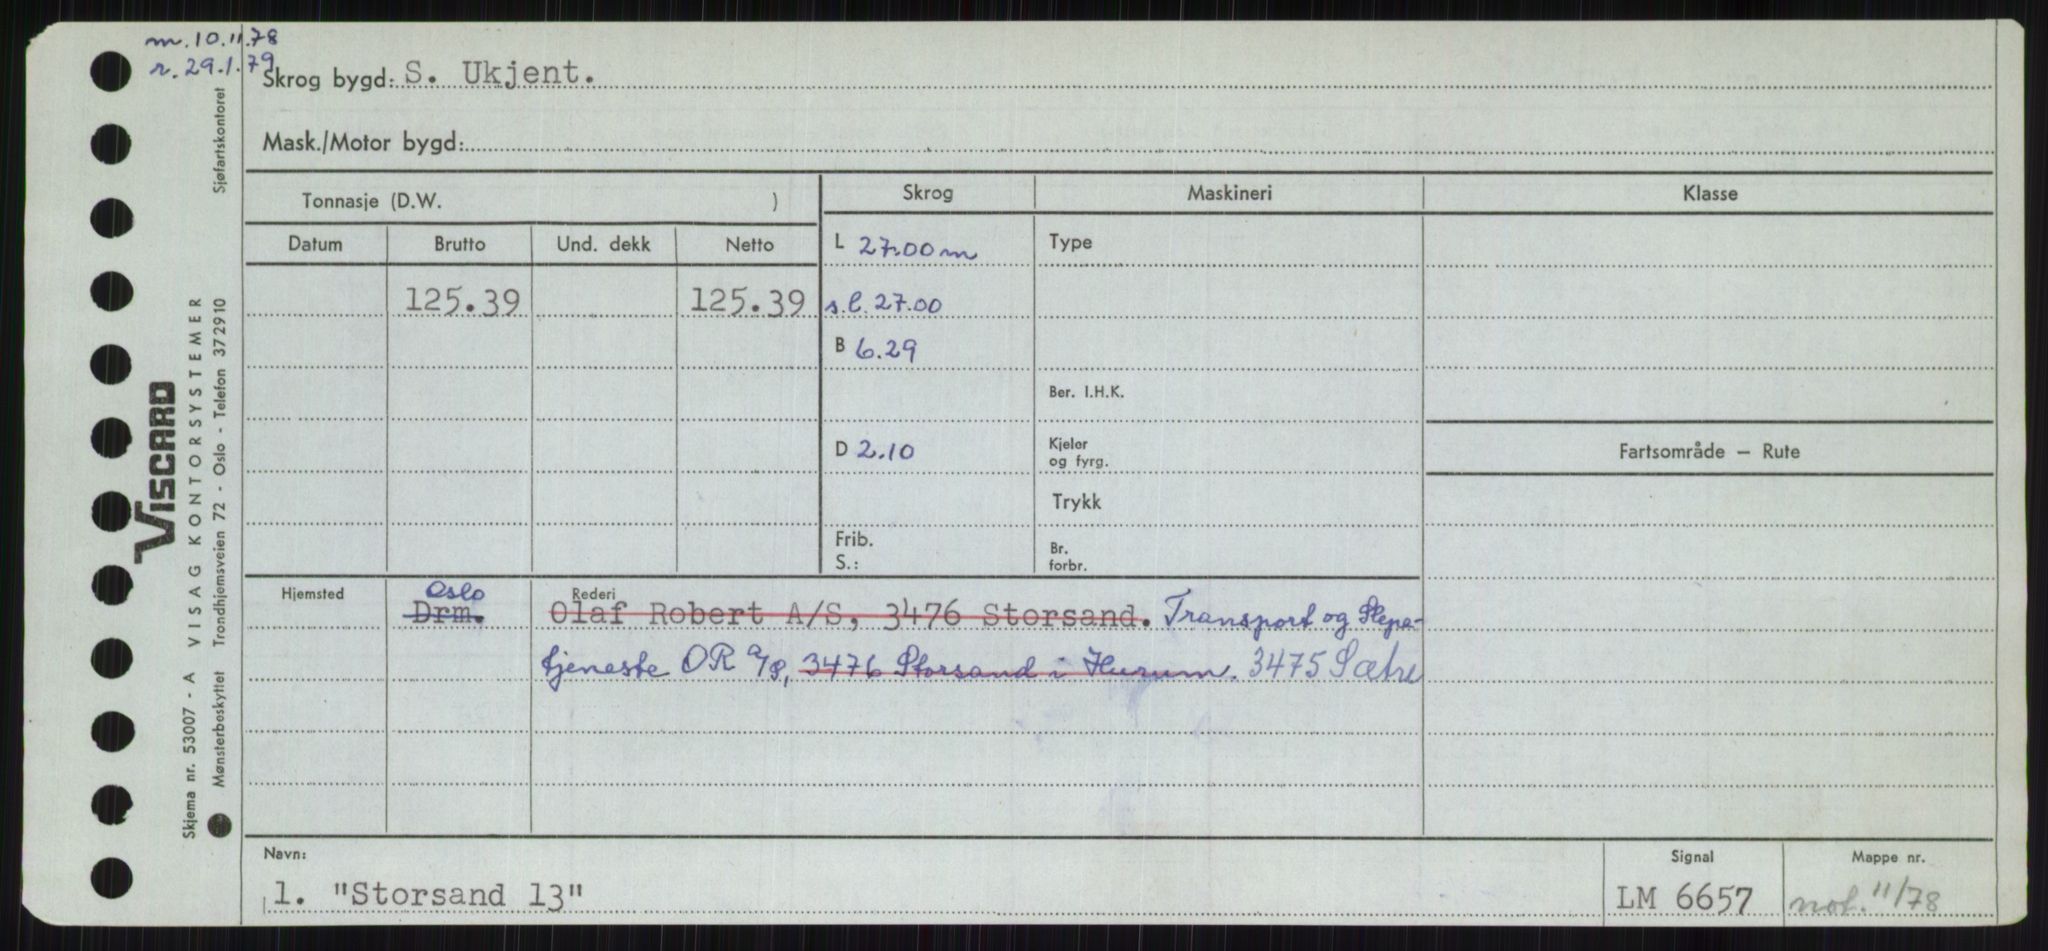 m. 10.11.78
r. 29.1.79
Skrog bygd: S. Ukjent.
Mask./Motor bygd:
Tonnasje (D.W. )
Skrog
Maskineri
Klasse
Datum
Brutto
Und. dekk
Netto
L 27.00 m
Type
125.39
125.39
s.l. 27.00
B 6.29
Ber. I.H.K.
D 2.10
Kjeler og fyrg.
Fartsområde — Rute
Trykk
Frib.
S.:
Br. forbr.
Hjemsted
Oslo
Drm.
Rederi
Olaf Robert A/S, 3476 Storsand. Transport og Slepe-
tjeneste OR A/S, 3476 Storsand i Hurum. 3475 Sætre
Navn:
1. "Storsand 13"
Signal
LM 6657
Mappe nr.
not. 11/78
VISCARD
Skjema nr. 53007 - A VISAG KONTORSYSTEMER
Mønsterbeskyttet Trondhjemsveien 72 - Oslo - Telefon 372910 Sjøfartskontoret